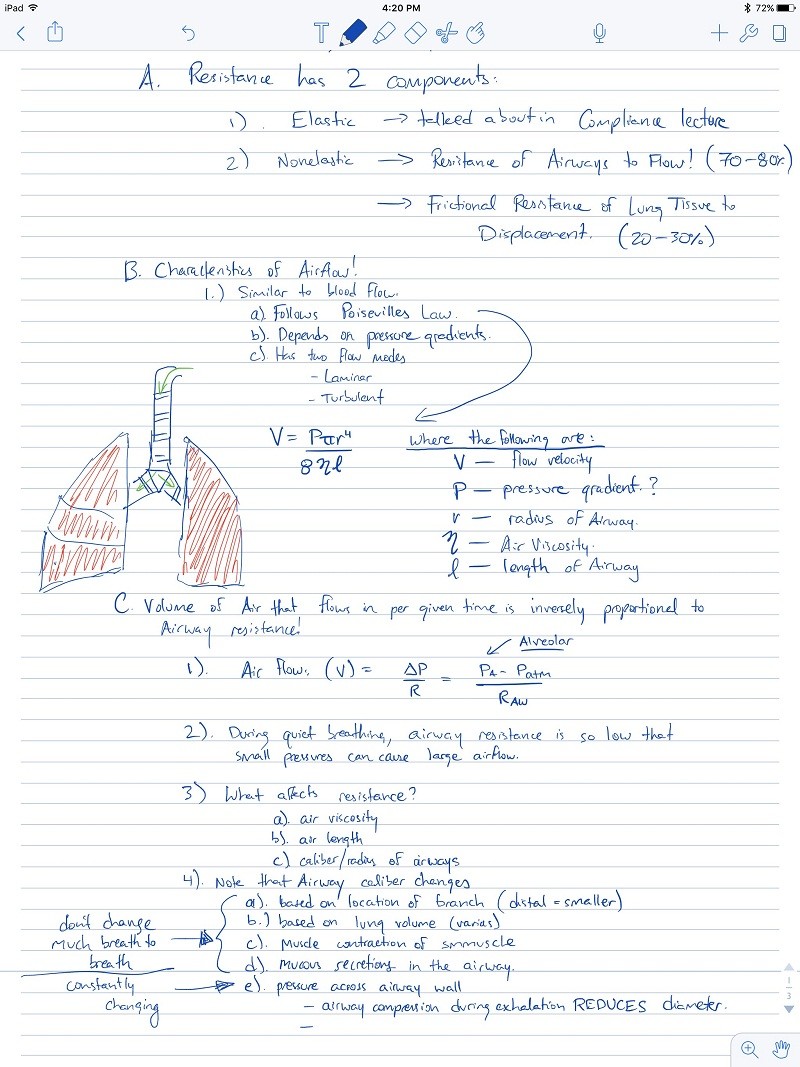 iPad
4:20 PM
72%
T
A. Resistance has 2 components:
1) Elastic → talked about in Compliance lecture
2) Nonelastic → Resistance of Airways to Flow! (70-80%)
→ Frictional Resistance of Lung Tissue to
Displacement. (20-30%)
B. Characteristics of Airflow!
1.) Similar to blood flow.
a). Follows Poisevilles Law.
b). Depends on pressure gradients.
c). Has two flow modes
- Laminar
- Turbulent
V = Pπr⁴ / 8ηl
where the following are:
V — flow velocity
P — pressure gradient.?
r — radius of Airway.
η — Air Viscosity.
l — length of Airway
C. Volume of Air that flows in per given time is inversely proportional to
Airway resistance!
Alveolar
1). Air flow. (V) = ΔP / R = PA - Patm / RAW
2). During quiet breathing, airway resistance is so low that
small pressures can cause large airflow.
3) What affects resistance?
a). air viscosity
b). air length
c) caliber/radius of airways
4). Note that Airway caliber changes
a). based on location of branch (distal = smaller)
b.) based on lung volume (varias)
c). Muscle contraction of smmuscle
d). mucous secretions in the airway.
don't change
much breath to
breath
constantly
changing
e). pressure across airway wall
- airway compression during exhalation REDUCES diameter.
-
1
3